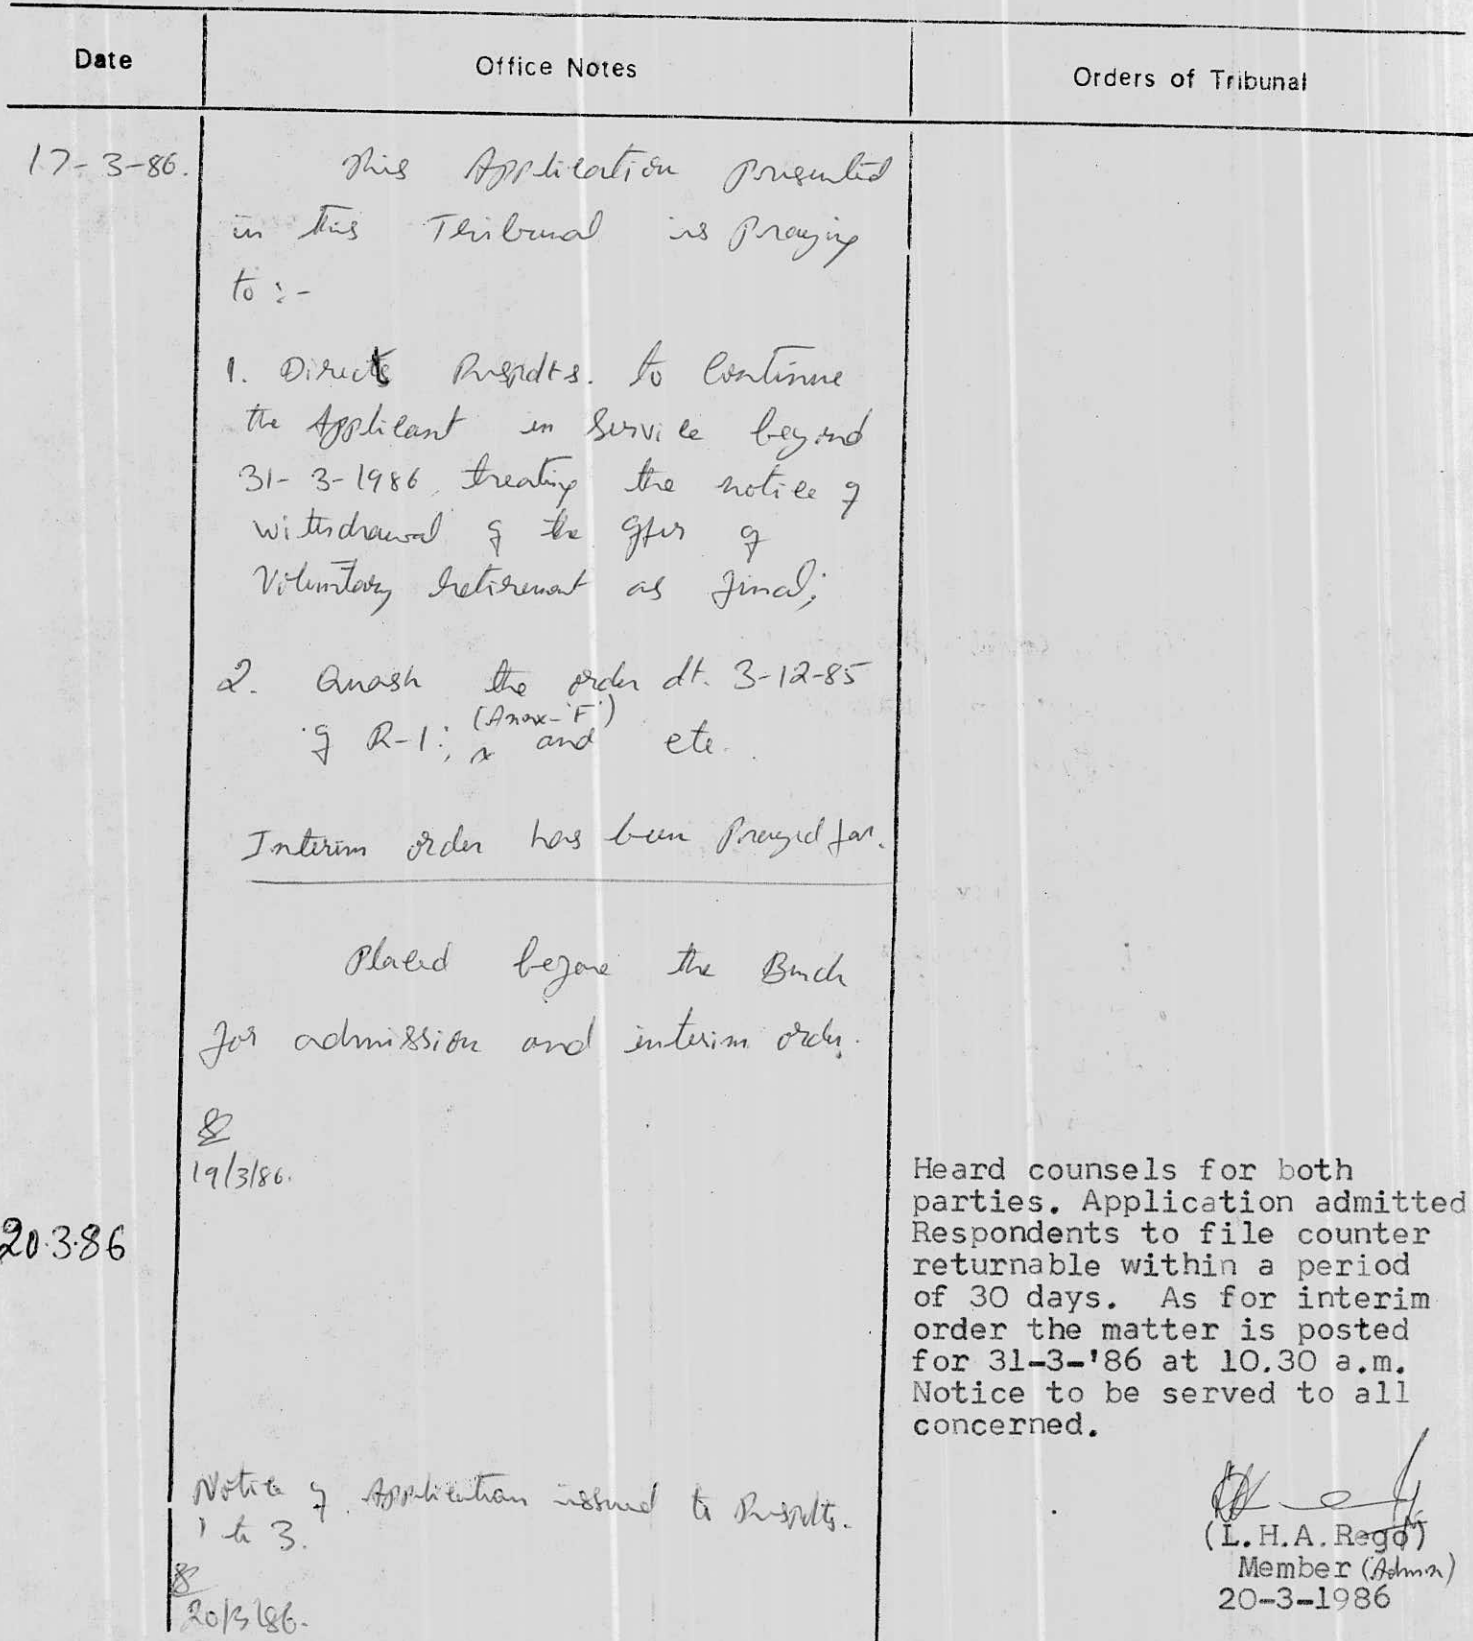 Date Office Notes Orders of Tribunal
17-3-86.
This Application presented
in this Tribunal is Praying
to :-
1. Direct Respdts. to Continue
the Applicant in Service beyond
31-3-1986, treating the notice of
withdrawal of the offer of
Voluntary retirement as final;
2. Quash the order dt. 3-12-85
(Anex-'F')
of R-1; and etc.
Interim order has been Prayed for.
Placed before the Bench
for admission and interim order.
19/3/86.
20.3.86
Heard counsels for both
parties. Application admitted
Respondents to file counter
returnable within a period
of 30 days. As for interim
order the matter is posted
for 31-3-'86 at 10.30 a.m.
Notice to be served to all
concerned.
Notice of Application issued to Respdts.
1 to 3.
20/3/86.
(L.H.A.Rego)
Member (Admn)
20-3-1986